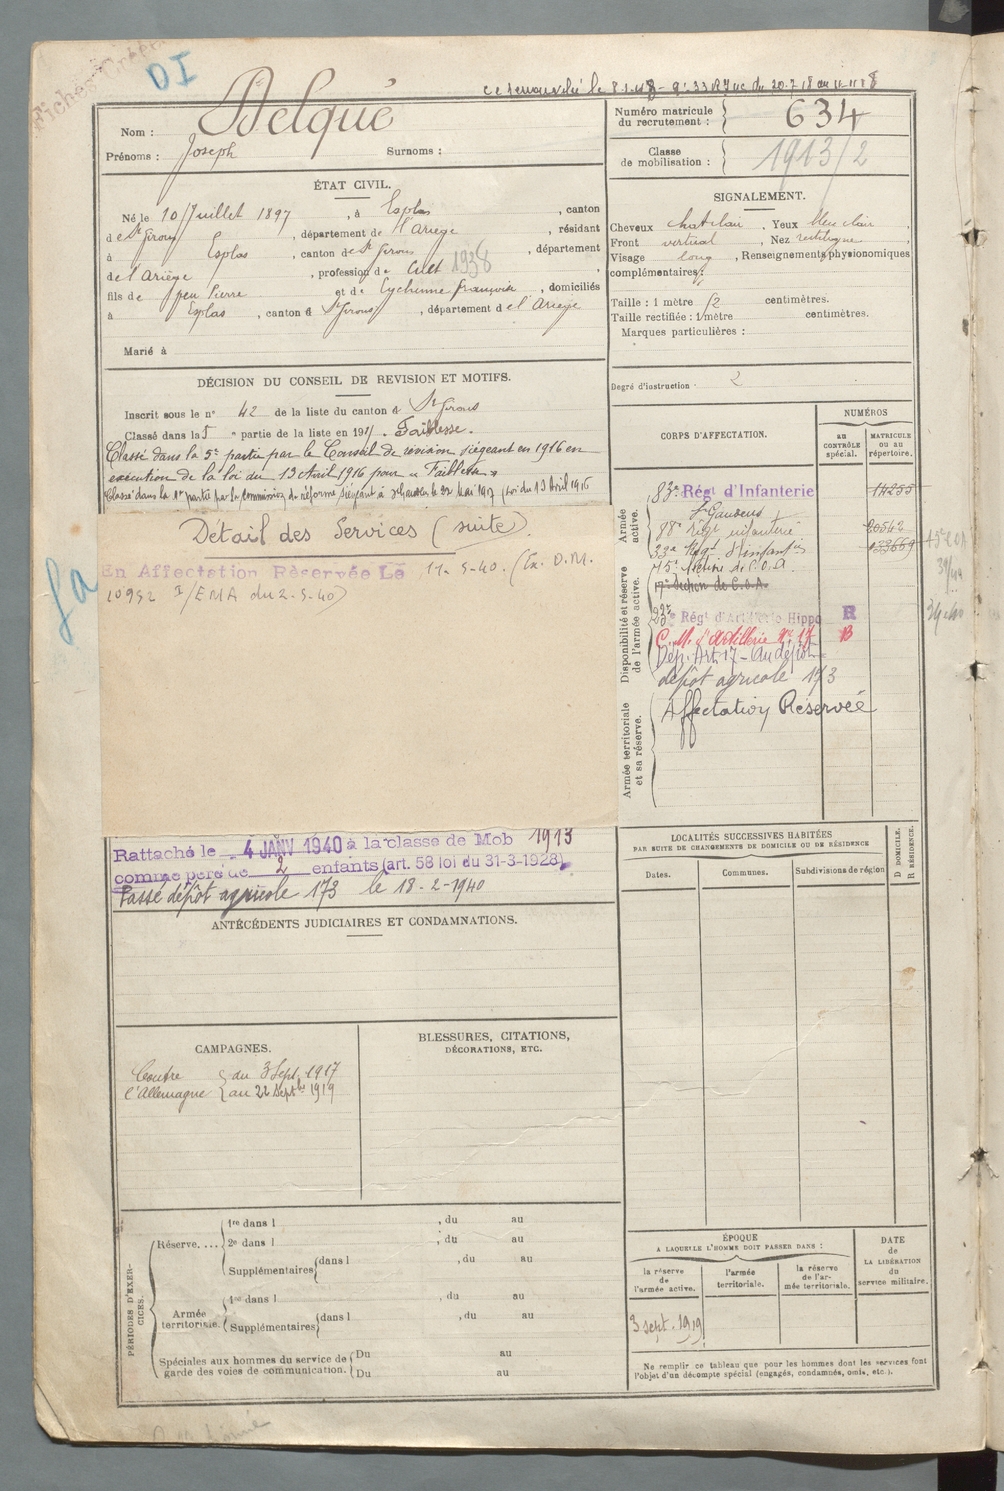 Fiches
DI
Nom : Delqué
Prénoms : Joseph Surnoms :
Numéro matricule du recrutement : 634
Classe de mobilisation : 1913/2
ÉTAT CIVIL.
Né le 10 Juillet 1897, à Esplas, canton
de St Girons, département de l'Ariège, résidant
à Esplas, canton de St Girons, département
de l'Ariège, profession de Cult 1938
fils de feu Pierre et de Eychenne françoise, domiciliés
à Esplas, canton d St Girons, département de l'Ariège
Marié à
SIGNALEMENT.
Cheveux chat clair, Yeux bleu clair,
Front vertical, Nez rectiligne,
Visage long, Renseignements physionomiques
complémentaires :
Taille : 1 mètre 52 centimètres.
Taille rectifiée : 1 mètre centimètres.
Marques particulières :
Degré d'instruction. 2
DÉCISION DU CONSEIL DE REVISION ET MOTIFS.
Inscrit sous le n° 42 de la liste du canton d St Girons
Classé dans la 5e partie de la liste en 1917. Faiblesse.
Classé dans la 5e partie par le Conseil de révision siégeant en 1916 en
exécution de la loi du 13 Avril 1916 pour « Faiblesse »
Classé dans la 1e partie par la commission de réforme siégeant à St Gaudens le 22 Mai 1917 (Loi du 13 Avril 1916
Détail des Services (suite).
En Affectation Réservée Le 11-5-40. (Ex. D.M.
10952 I/EMA du 2-5-40)
Rattaché le 4 JANV 1940 à la classe de Mob 1913
comme père de 2 enfants (art. 58 loi du 31-3-1928)
Passé dépôt agricole 173 le 18-2-1940
CORPS D'AFFECTATION.
NUMÉROS
AU CONTRÔLE spécial.
MATRICULE ou au répertoire.
Armée active.
83e Régt d'Infanterie 14255
St Gaudens
88e Régt infanterie 20542
33e Régt d'infantie 133669
15e Section de C.O.A.
17e Section de C.O.A.
Disponibilité et réserve de l'armée active.
23e Régt d'Artillerie Hippo R
C.M. d'Artillerie n° 17 B
Dép. Art. 17 - Au dépôt
dépôt agricole 173
Armée territoriale et sa réserve.
Affectation Réservée
LOCALITÉS SUCCESSIVES HABITÉES
PAR SUITE DE CHANGEMENTS DE DOMICILE OU DE RÉSIDENCE
Dates.
Communes.
Subdivisions de région
D DOMICILE.
R RÉSIDENCE.
ANTÉCÉDENTS JUDICIAIRES ET CONDAMNATIONS.
CAMPAGNES.
Contre l'Allemagne { du 3 Sept. 1917
au 22 Septbre 1919
BLESSURES, CITATIONS,
DÉCORATIONS, ETC.
PÉRIODES D'EXERCICES.
Réserve....
1re dans l , du au
2e dans l , du au
Supplémentaires dans l , du au
Armée territoriale.
1re dans l , du au
Supplémentaires dans l , du au
Spéciales aux hommes du service de garde des voies de communication.
Du au
Du au
ÉPOQUE
A LAQUELLE L'HOMME DOIT PASSER DANS :
la réserve de l'armée active.
l'armée territoriale.
la réserve de l'armée territoriale.
DATE de LA LIBÉRATION du service militaire.
3 sept. 1919
Ne remplir ce tableau que pour les hommes dont les services font
l'objet d'un décompte spécial (engagés, condamnés, omis, etc.).